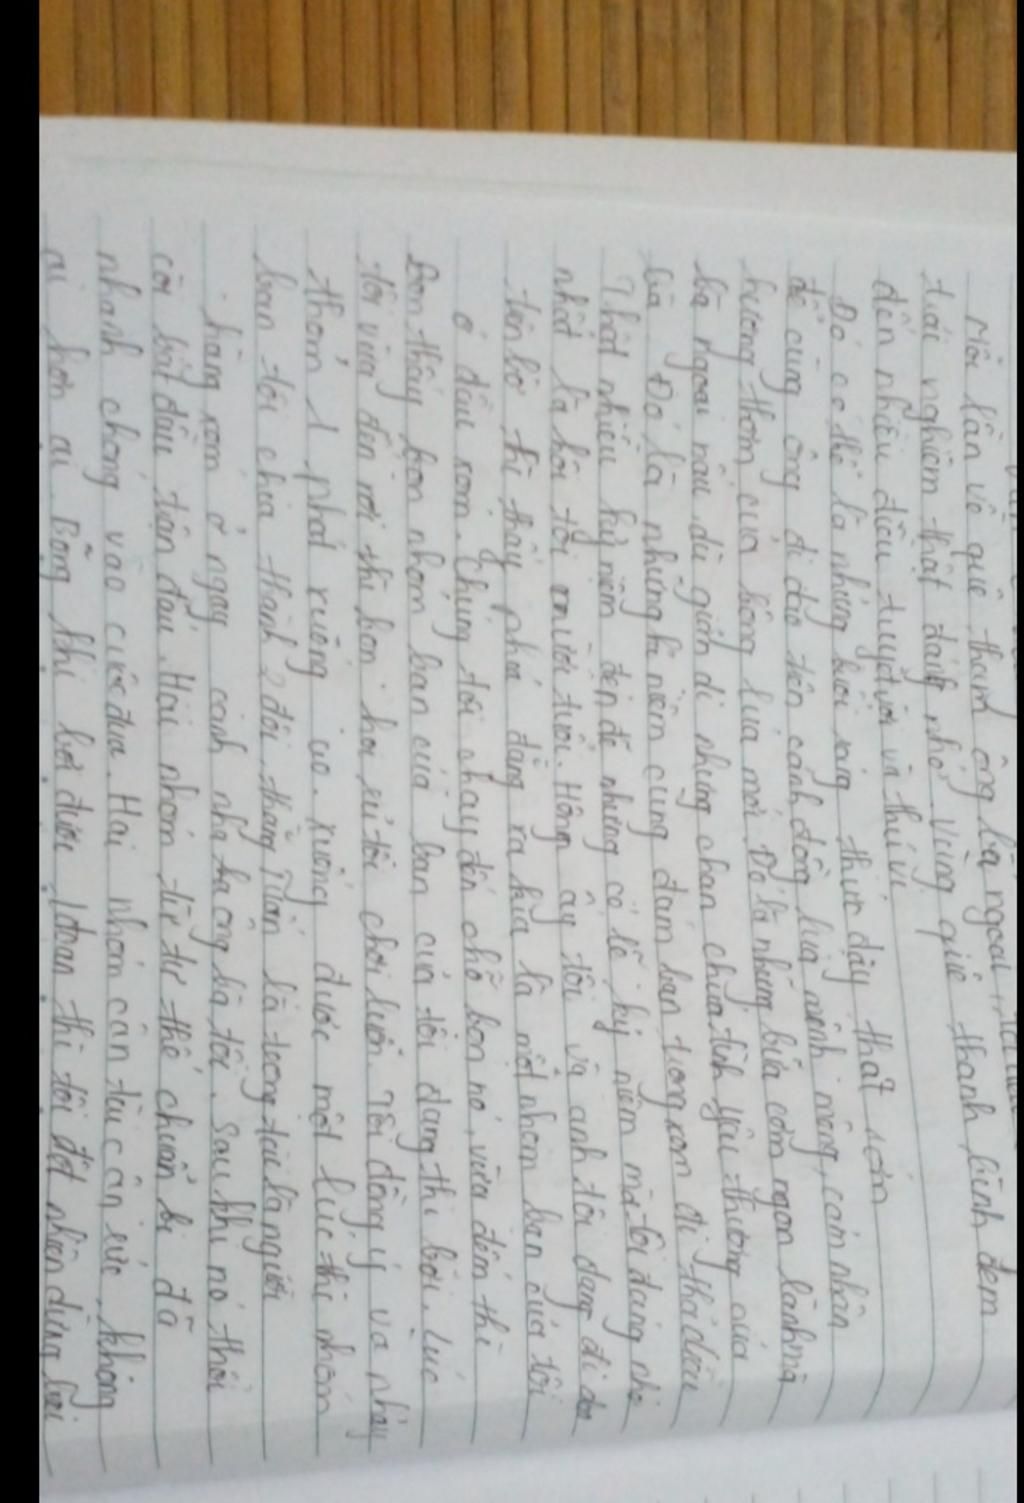 Mỗi lần về quê thăm ông bà ngoại
trải nghiệm thật đáng nhớ. Vùng quê thanh bình đem
đến nhiều điều tuyệt vời và thú vị
Đó có thể là những buổi sáng thức dậy thật sớm
để cùng ông đi dạo trên cánh đồng lúa mênh mông, cảm nhận
hương thơm của bông lúa mới. Đó là những bữa cơm ngon lành mà
bà ngoại nấu dù giản dị nhưng chan chứa tình yêu thương của
bà. Đó là những kỉ niệm cùng đám bạn trong xóm đi thả diều
Thật nhiều kỷ niệm đến để nhưng có lẽ kỷ niệm mà tôi đáng nhớ
nhất là hồi tôi mười tuổi. Hôm ấy tôi và anh tôi đang đi dạo
trên bờ thì thấy phía đằng xa kia là một nhóm bạn của tôi
ở đầu xóm. Chúng tôi chạy đến chỗ bọn nó, vừa đến thì
bọn thấy bọn nhóm bạn của bạn của tôi đang thi bơi. Lúc
tôi vừa đến nơi thì bọn hỏi rủ tôi chơi luôn. Tôi đồng ý và nhảy
thỏm 1 phát xuống ao. xuống được một lúc thì nhóm
bạn tôi chia thành 2 đội, thằng Tuấn là trọng tài là người
hàng xóm ở ngay cạnh nhà bà ông bà tôi. Sau khi nó thổi
còi bắt đầu trận đấu. Hai nhóm từ tư thế chuẩn bị đã
nhanh chóng vào cuộc đua. Hai nhóm cân tài cân sức, không
ai hơn ai. Bỗng khi bơi được đoạn thì tôi đột nhiên dừng lại